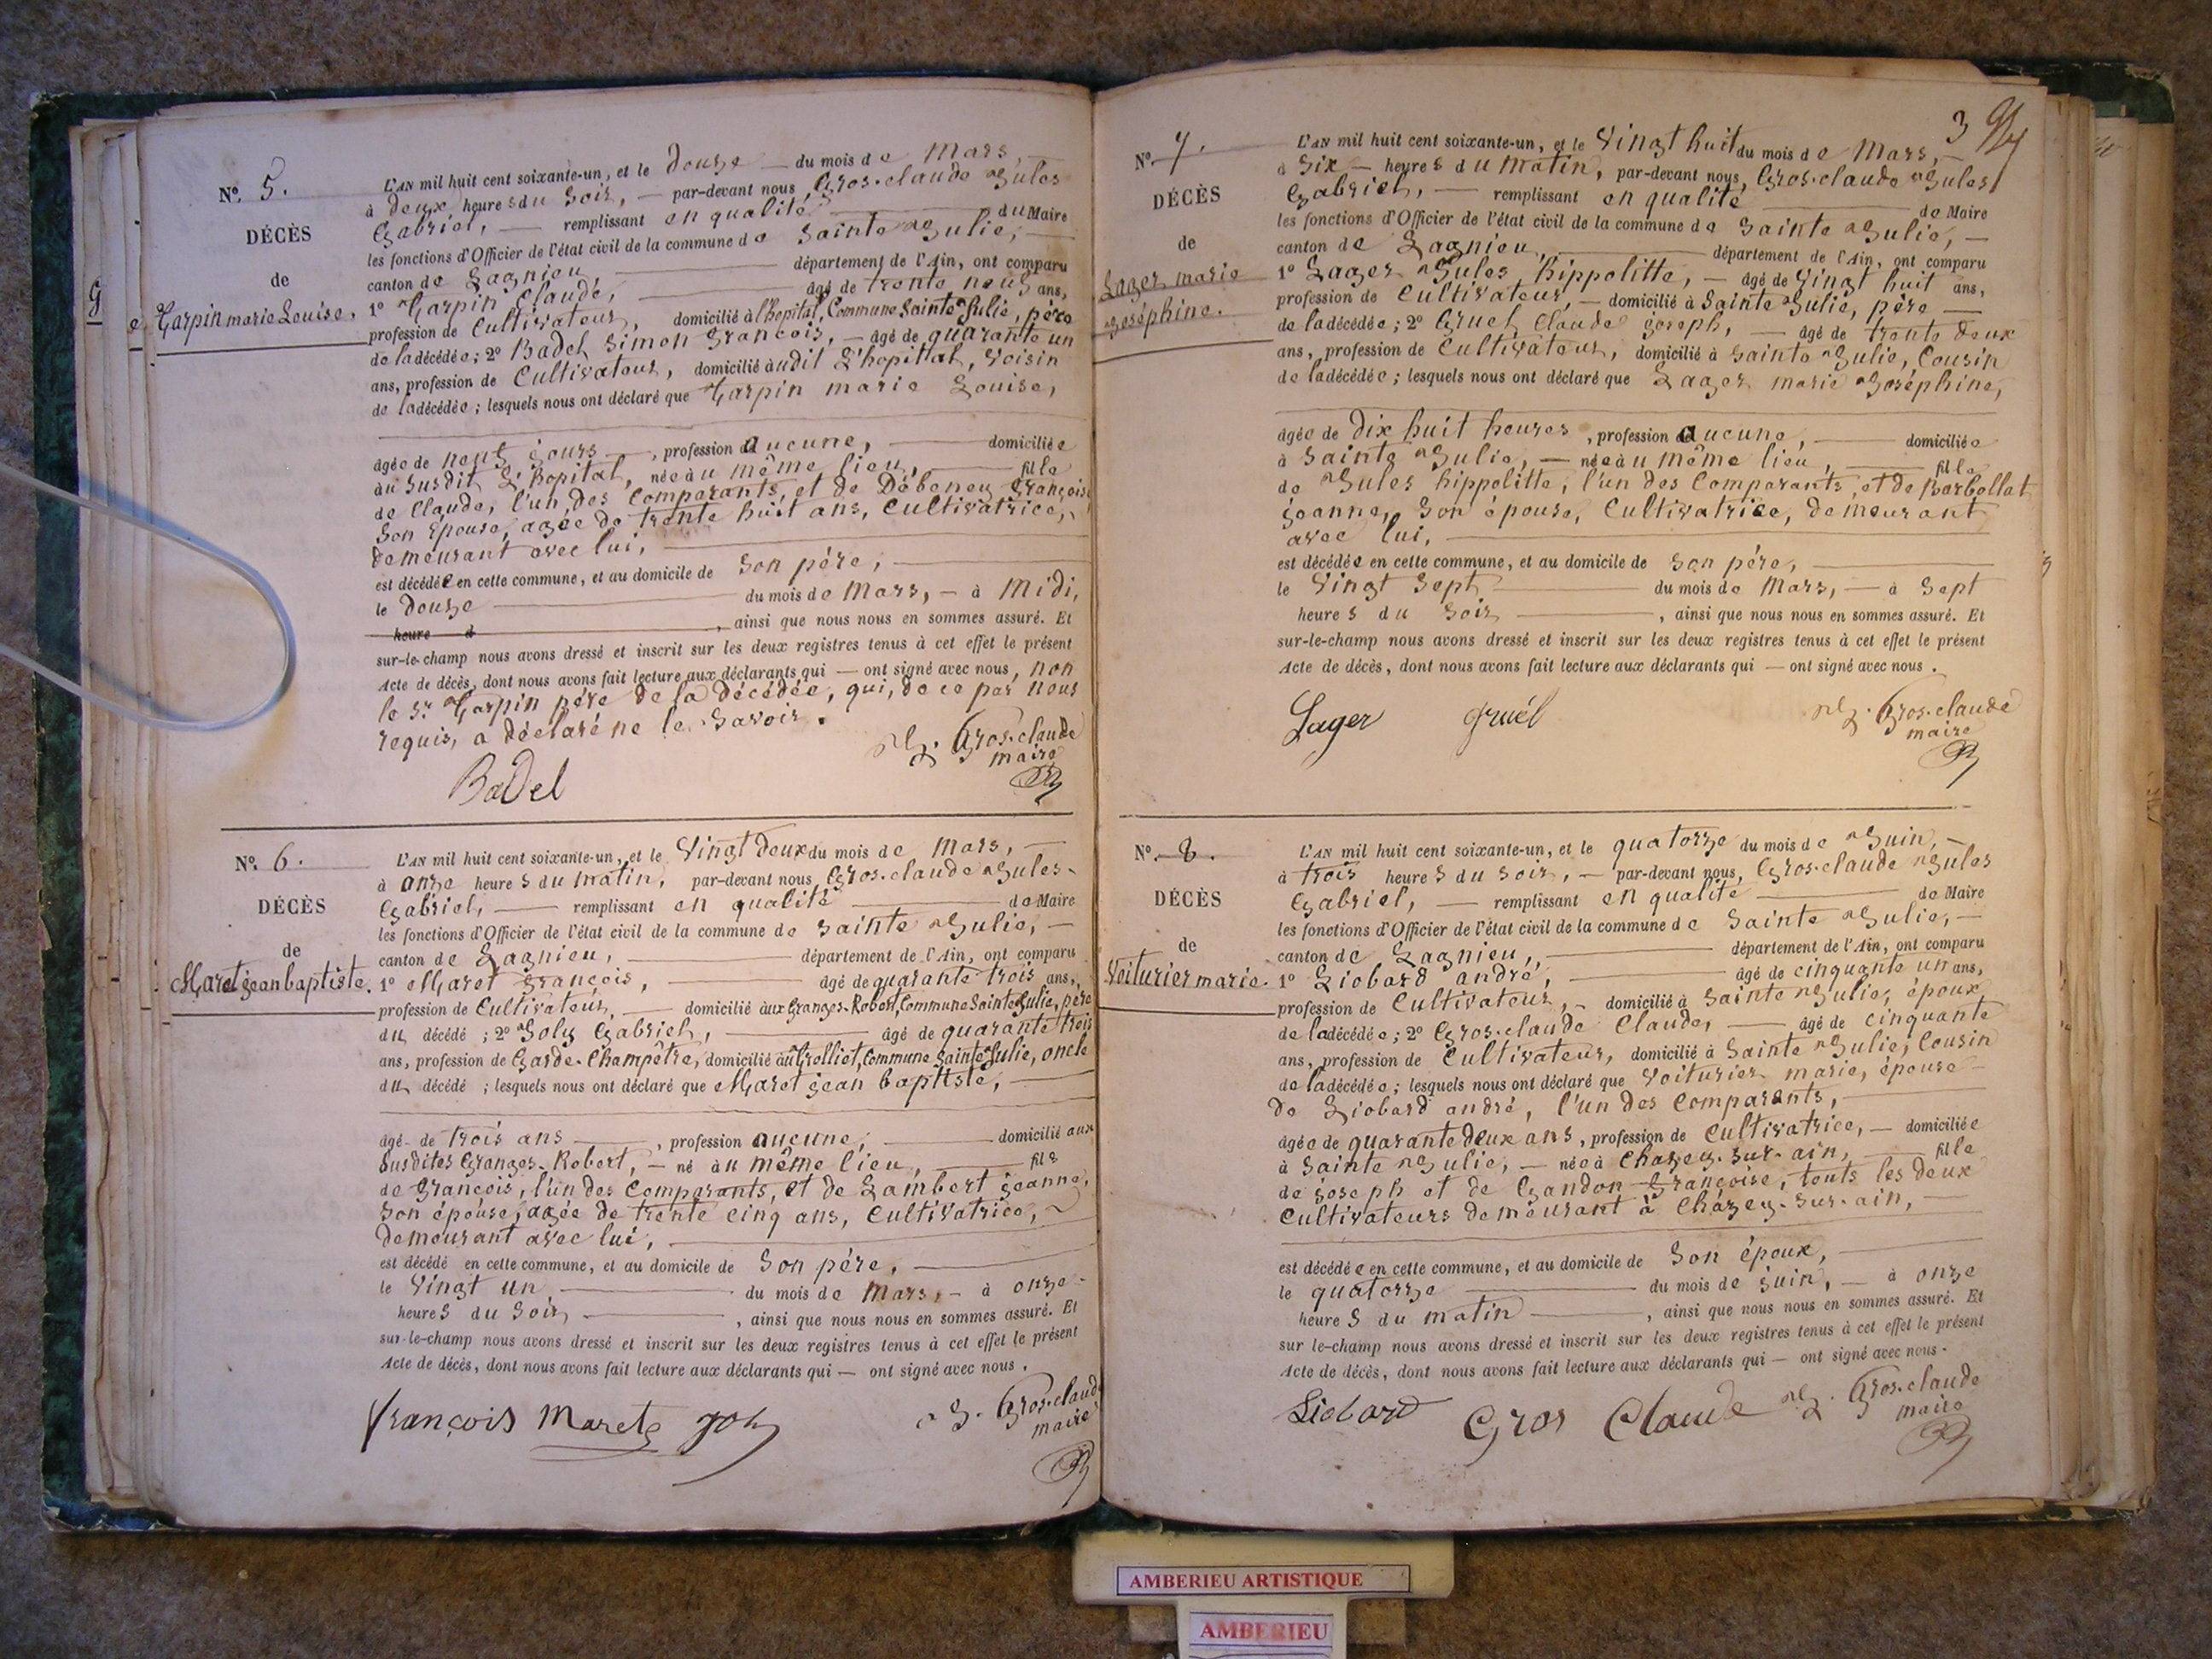 Nº. 5.
DÉCÈS
de
Tarpin marie Louise.
L'AN mil huit cent soixante-un, et le douze — du mois de Mars,
à deux heures du Soir, — par-devant nous, Gros-claude Jules
Gabriel, — remplissant en qualité — du Maire
les fonctions d'Officier de l'état civil de la commune de Sainte Julie, —
canton de Lagnieu, — département de l'Ain, ont comparu
1º Tarpin Claude, — âgé de trente neuf ans,
profession de Cultivateur, domicilié à l'hopital, Commune Sainte Julie, père
de la décédée; 2º Badel Simon François, — âgé de quarante un
ans, profession de Cultivateur, domicilié audit L'hopittal, Voisin
de la décédée; lesquels nous ont déclaré que Tarpin marie Louise,
âgée de neuf jours —, profession aucune, — domiciliée
au Susdit L'hopital, née au même lieu, — fille
de Claude, l'un des Comparants, et de Débeney Françoise
Son Epouse, agée de trente huit ans, Cultivatrice,
demeurant avec lui, —
est décédée en cette commune, et au domicile de Son père, —
le douze — du mois de Mars, — à Midi,
heure d —, ainsi que nous nous en sommes assuré. Et
sur-le-champ nous avons dressé et inscrit sur les deux registres tenus à cet effet le présent
Acte de décès, dont nous avons fait lecture aux déclarants qui — ont signé avec nous, non
le Sr. Tarpin père de la décédée, qui, de ce par nous
requis, a déclaré ne le Savoir.
Badel
J. G. Gros-claude
maire
Nº. 6.
DÉCÈS
de
Maret jean baptiste.
L'AN mil huit cent soixante-un, et le Vingt deux du mois de Mars, —
à onze heures du matin, par-devant nous, Gros-claude Jules
Gabriel, — remplissant en qualité — de Maire
les fonctions d'Officier de l'état civil de la commune de Sainte Julie, —
canton de Lagnieu, — département de l'Ain, ont comparu
1º Maret François, — âgé de quarante trois ans,
profession de Cultivateur, — domicilié aux Granges-Robert, Commune Sainte Julie, père
du décédé; 2º Joly Gabriel, — âgé de quarante trois
ans, profession de Garde-Champêtre, domicilié au Trolliet, Commune Sainte Julie, oncle
du décédé; lesquels nous ont déclaré que Maret jean baptiste, —
âgé de trois ans —, profession aucune, — domicilié aux
Susdites Granges-Robert, — né au même lieu, — fils
de François, l'un des Comparants, et de Lambert jeanne,
Son épouse, agée de trente cinq ans, Cultivatrice,
demeurant avec lui, —
est décédé en cette commune, et au domicile de Son père, —
le Vingt un — du mois de Mars, — à onze
heures du Soir —, ainsi que nous nous en sommes assuré. Et
sur-le-champ nous avons dressé et inscrit sur les deux registres tenus à cet effet le présent
Acte de décès, dont nous avons fait lecture aux déclarants qui — ont signé avec nous.
François Maret Joly
J. G. Gros-claude
maire
3
Nº. 7.
DÉCÈS
de
Lager marie
Joséphine.
L'AN mil huit cent soixante-un, et le Vingt huit du mois de Mars, —
à Six — heures du Matin, par-devant nous, Gros-claude Jules
Gabriel, — remplissant en qualité — de Maire
les fonctions d'Officier de l'état civil de la commune de Sainte Julie, —
canton de Lagnieu, — département de l'Ain, ont comparu
1º Lager Jules hippolitte, — âgé de Vingt huit ans,
profession de Cultivateur, — domicilié à Sainte Julie, père —
de la décédée; 2º Gruel Claude joseph, — âgé de trente deux
ans, profession de Cultivateur, domicilié à Sainte Julie, Cousin
de la décédée; lesquels nous ont déclaré que Lager marie Joséphine,
âgée de dix huit heures, profession aucune, — domiciliée
à Sainte Julie, — née au même lieu, — fille
de Jules hippolitte, l'un des Comparants, et de Barbollat
jeanne, Son épouse, Cultivatrice, demeurant
avec lui, —
est décédée en cette commune, et au domicile de Son père, —
le Vingt Sept — du mois de Mars, — à Sept
heures du Soir —, ainsi que nous nous en sommes assuré. Et
sur-le-champ nous avons dressé et inscrit sur les deux registres tenus à cet effet le présent
Acte de décès, dont nous avons fait lecture aux déclarants qui — ont signé avec nous.
Lager Gruél
J. G. Gros-claude
maire
Nº. 8.
DÉCÈS
de
Voiturier marie.
L'AN mil huit cent soixante-un, et le quatorze du mois de Juin, —
à trois heures du Soir, — par-devant nous, Gros-claude Jules
Gabriel, — remplissant en qualité — de Maire
les fonctions d'Officier de l'état civil de la commune de Sainte Julie, —
canton de Lagnieu, — département de l'Ain, ont comparu
1º Liobard andré, — âgé de cinquante un ans,
profession de Cultivateur, — domicilié à Sainte Julie, époux
de la décédée; 2º Gros-claude Claude, — âgé de cinquante
ans, profession de Cultivateur, domicilié à Sainte Julie, Cousin
de la décédée; lesquels nous ont déclaré que Voiturier marie, épouse
de Liobard andré, l'un des Comparants, —
âgée de quarante deux ans, profession de Cultivatrice, — domiciliée
à Sainte Julie, — née à Chazey-Sur-ain, — fille
de joseph et de Gandon Françoise, touts les deux
Cultivateurs demeurant à Chazey-Sur-ain, —
est décédée en cette commune, et au domicile de Son époux, —
le quatorze — du mois de juin, — à onze
heures du matin —, ainsi que nous nous en sommes assuré. Et
sur le-champ nous avons dressé et inscrit sur les deux registres tenus à cet effet le présent
Acte de décès, dont nous avons fait lecture aux déclarants qui — ont signé avec nous.
Liobard Gros Claude
J. G. Gros-claude
maire
AMBERIEU ARTISTIQUE
AMBERIEU